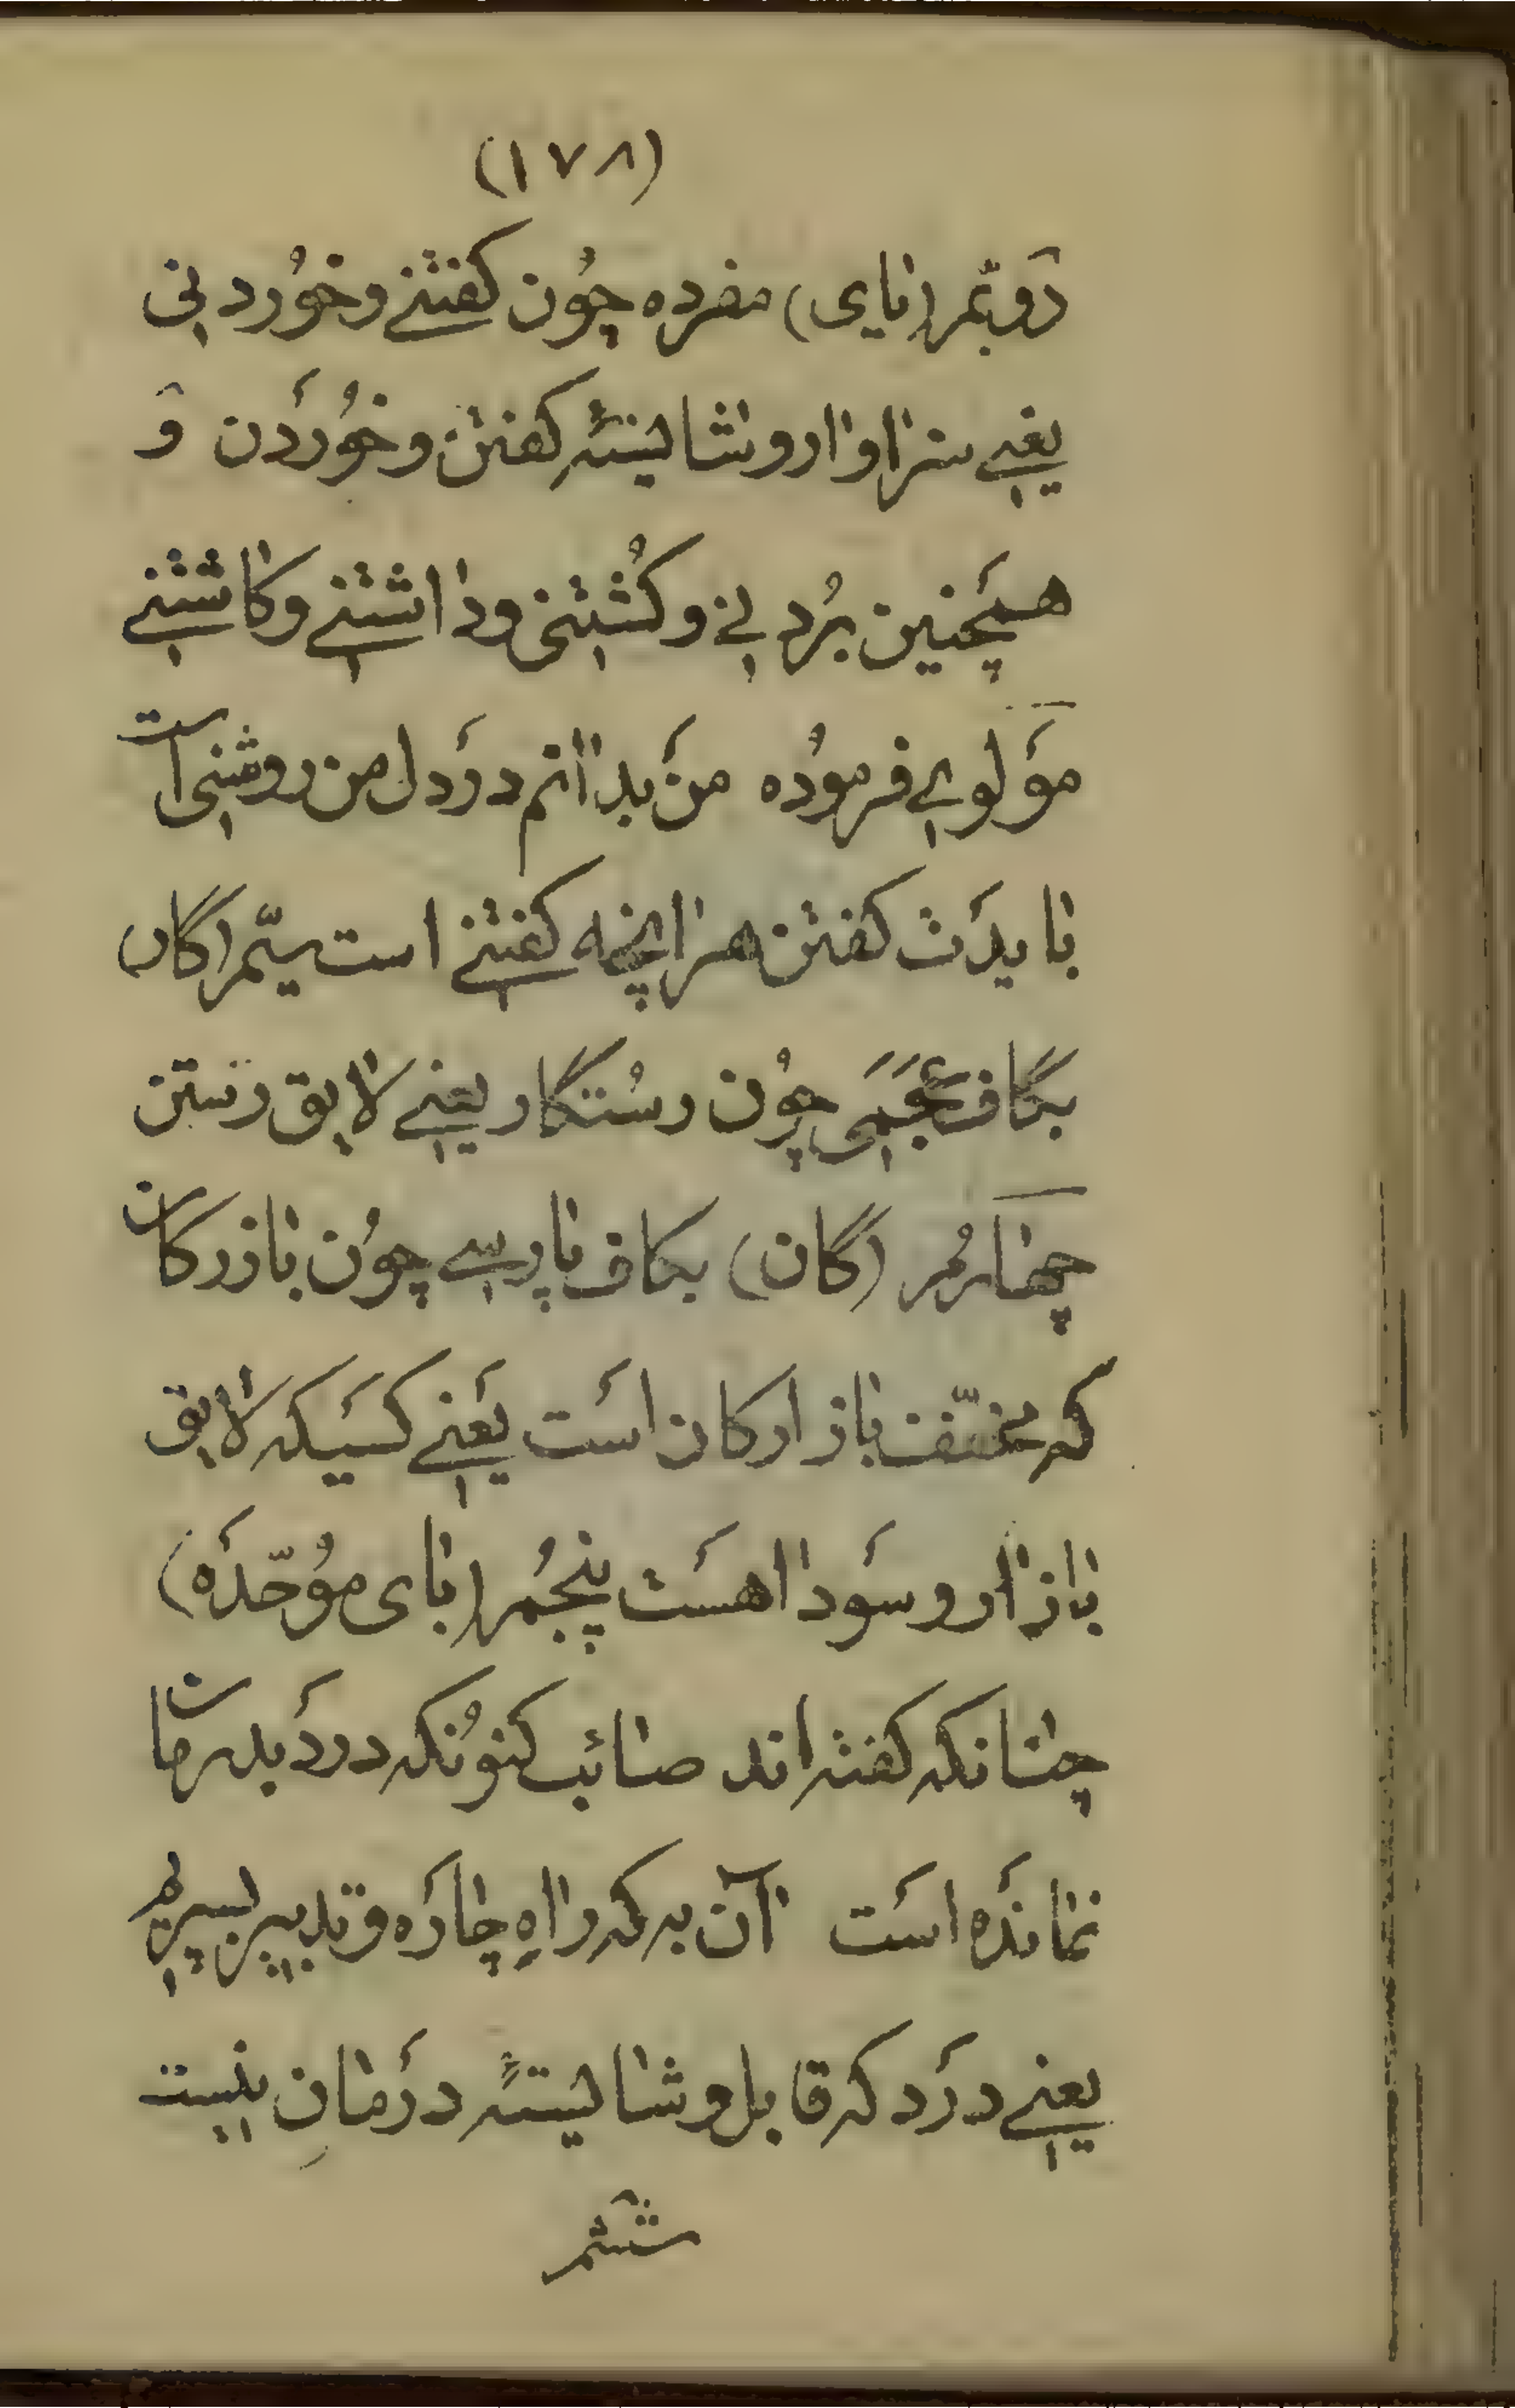 (۱۷۸)
دَوِیّم (یای) مفرده چُون کفتنے وخوُردنی
یعنے سزاوار وشایستهٔ کفتن وخوُردَن وَ
همچَنین بُردنے وکُشتنی وداشتنے وکاشتنے
مَولوی فرموُده منَ بدانم درَدل من روشنی است
بایدَت کفتن هرانچه کفتنے است سیّم (گار)
بگاف عَجَمی چوُن رسُتگار یعنے لایق رستن
چهارمُ (گان) بکاف پارسے چوُن بازرکان
که مخفّف بازارکان اَست یَعنے کسَیکه لایق
بازار وسَودا هسَت پنجمُ (بای موُحّدَه)
چنانکه کفته اند صائب کنوُنکه دردَ بدرمان
نماندَه اسَت آن به که راهِ چارَه وتدبیر بسپریم
یعنے درَد که قابل وشایستهٔ درَمانِ نیست
ششم